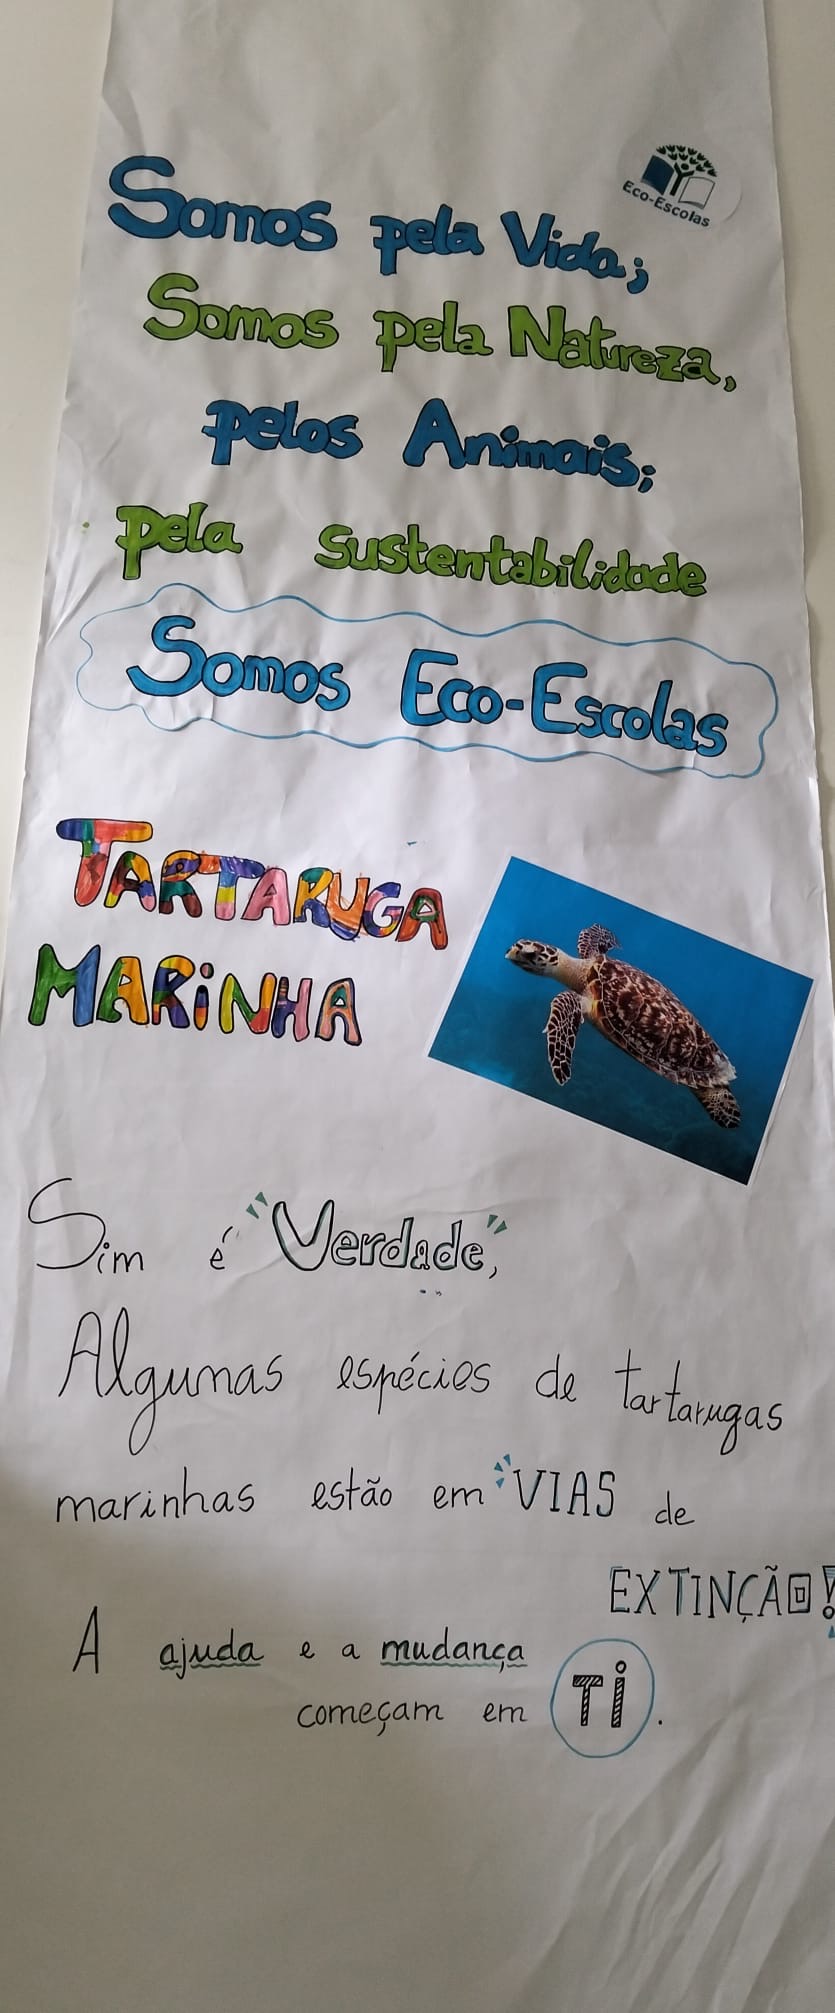 Eco-Escolas
Somos pela Vida;
Somos pela Natureza,
pelos Animais;
pela sustentabilidade
Somos Eco-Escolas
TARTARUGA
MARiNHA
Sim é "Verdade",
Algumas espécies de tartarugas
marinhas estão em VIAS de
EXTINÇÃO!
A ajuda e a mudança
começam em Ti.